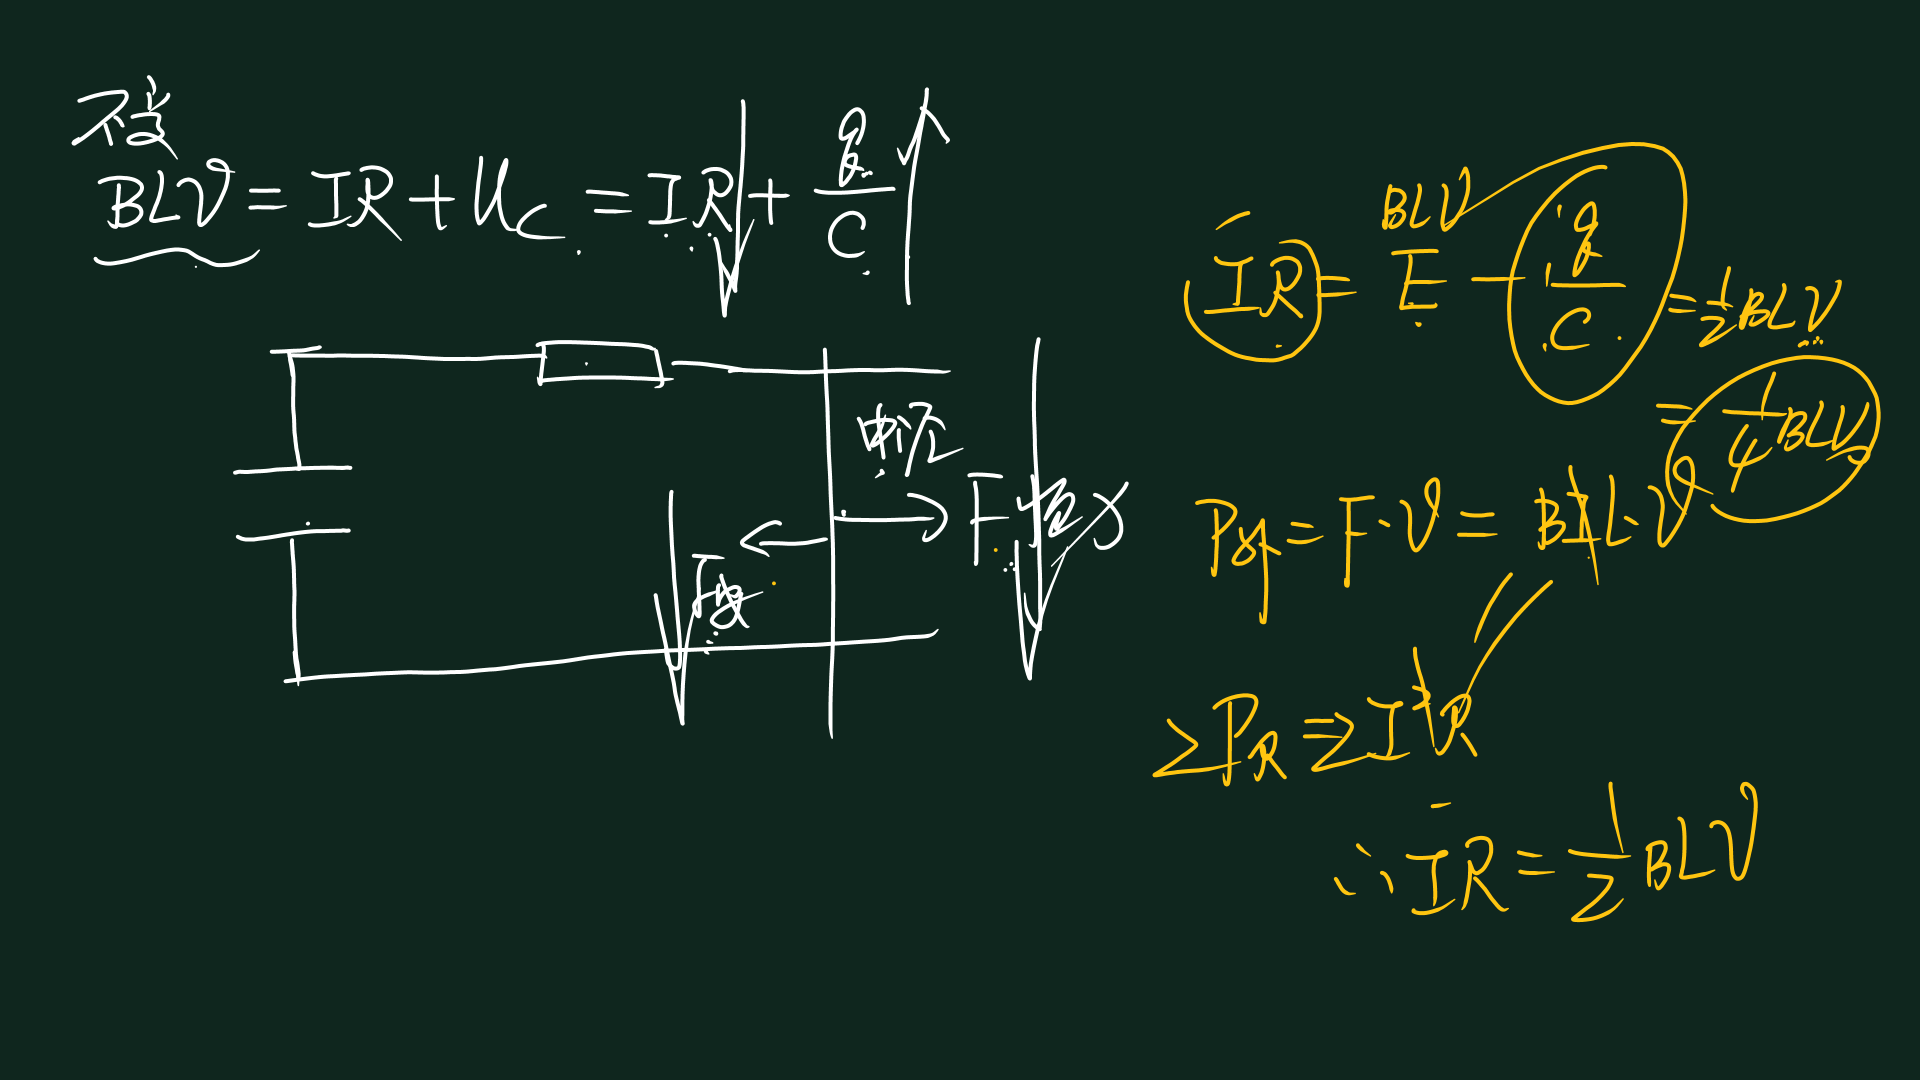 不变
BLV = IR + Uc = IR + q/C
F安
F
BLV
IR = E - q/C = 1/2 BLV
= 1/4 BLV
P外 = F·V = BIL·V
P_R = I²R
∴ IR = 1/2 BLV